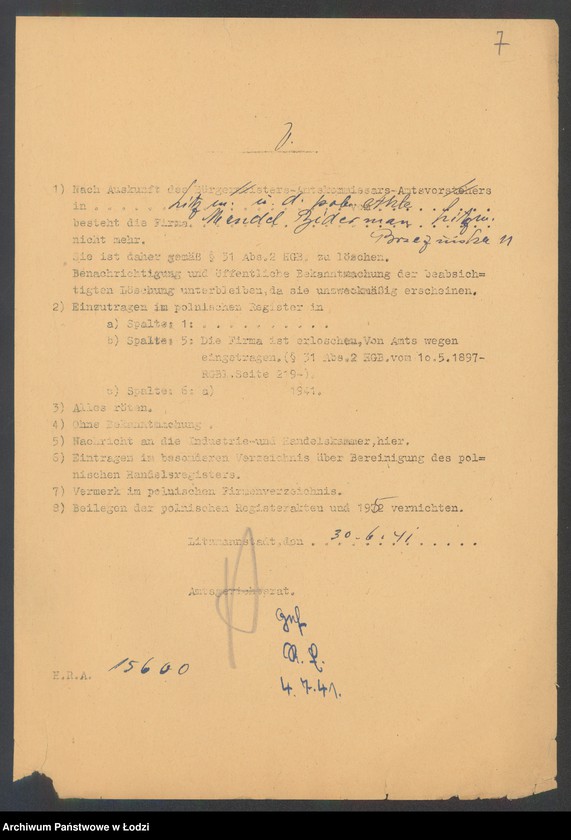 7
V.
1) Nach Auskunft des Bürgermeisters-Amtskommissars-Amtsvorstehers
in Litzm. u. d.
besteht die Firma Mendel Biderman Litzm.
nicht mehr. Brzezinska 11
Sie ist daher gemäß § 31 Abs.2 HGB. zu löschen.
Benachrichtigung und öffentliche Bekanntmachung der beabsich=
tigten Löschung unterbleiben, da sie unzweckmäßig erscheinen.
2) Einzutragen im polnischen Register in
a) Spalte: 1: . . . . . . . . . . .
b) Spalte: 5: Die Firma ist erloschen, Von Amts wegen
eingetragen.(§ 31 Abs.2 HGB.vom 1o.5.1897-
RGBl.Seite 219-).
c) Spalte: 6: a) 1941.
3) Alles röten.
4) Ohne Bekanntmachung .
5) Nachricht an die Industrie-und Handelskammer, hier.
6) Eintragen im besonderen Verzeichnis über Bereinigung des pol=
nischen Handelsregisters.
7) Vermerk im polnischen Firmenverzeichnis.
8) Beilegen der polnischen Registerakten und 195 vernichten.
Litzmannstadt,den 30-6.41
Amtsgerichtsrat.
gef
4.7.41.
H.R.A. 15600
Archiwum Państwowe w Łodzi